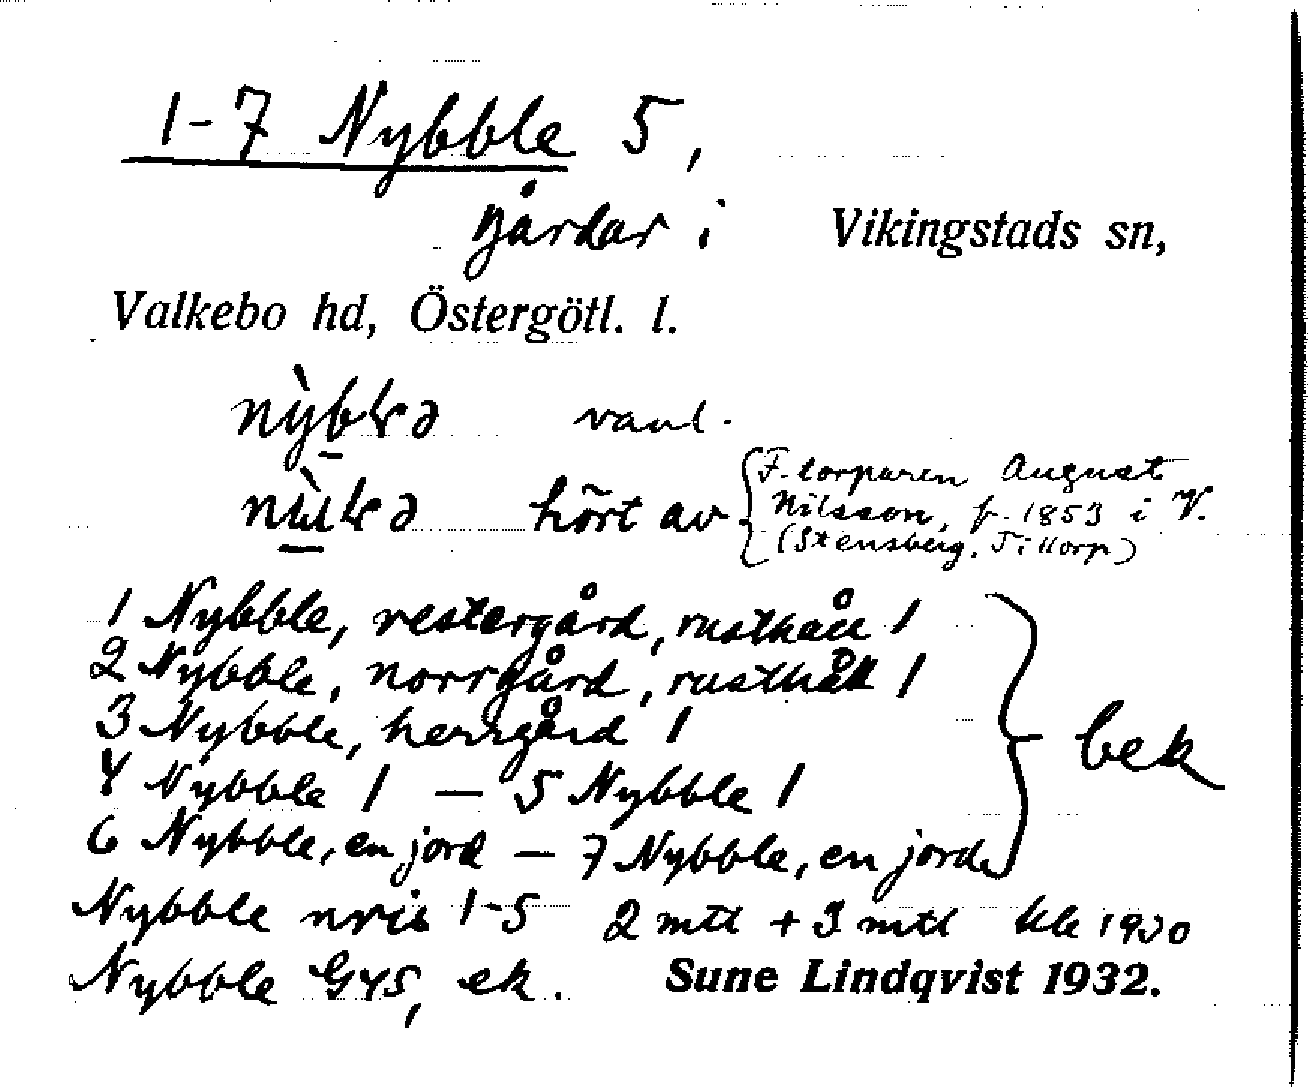 1-7 Nybble 5,
gårdar i Vikingstads sn,
Valkebo hd, Östergötl. l.
vanl.
hört av {F. torparen August
Nilsson, f. 1853 i V.
(Stensberg, Tittorp)
1 Nybble, västergård, rusthåll 1
2 Nybble, norrgård, rusthåll 1
3 Nybble, herrgård 1
4 Nybble 1 — 5 Nybble 1
6 Nybble, en jord — 7 Nybble, en jord
} bek
Nybble nris 1-5 2 mtl + 3 mtl 1930
Nybble G45, ek. Sune Lindqvist 1932.